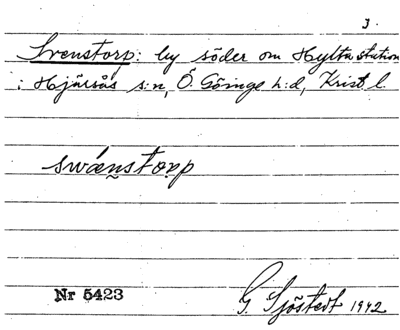 3.
Svenstorp: by söder om Hylta station
i Hjärsås s:n, Ö. Göinge h:d, Krist. l.
swǽ̰nstorp
Nr 5423
G. Sjöstedt 1942